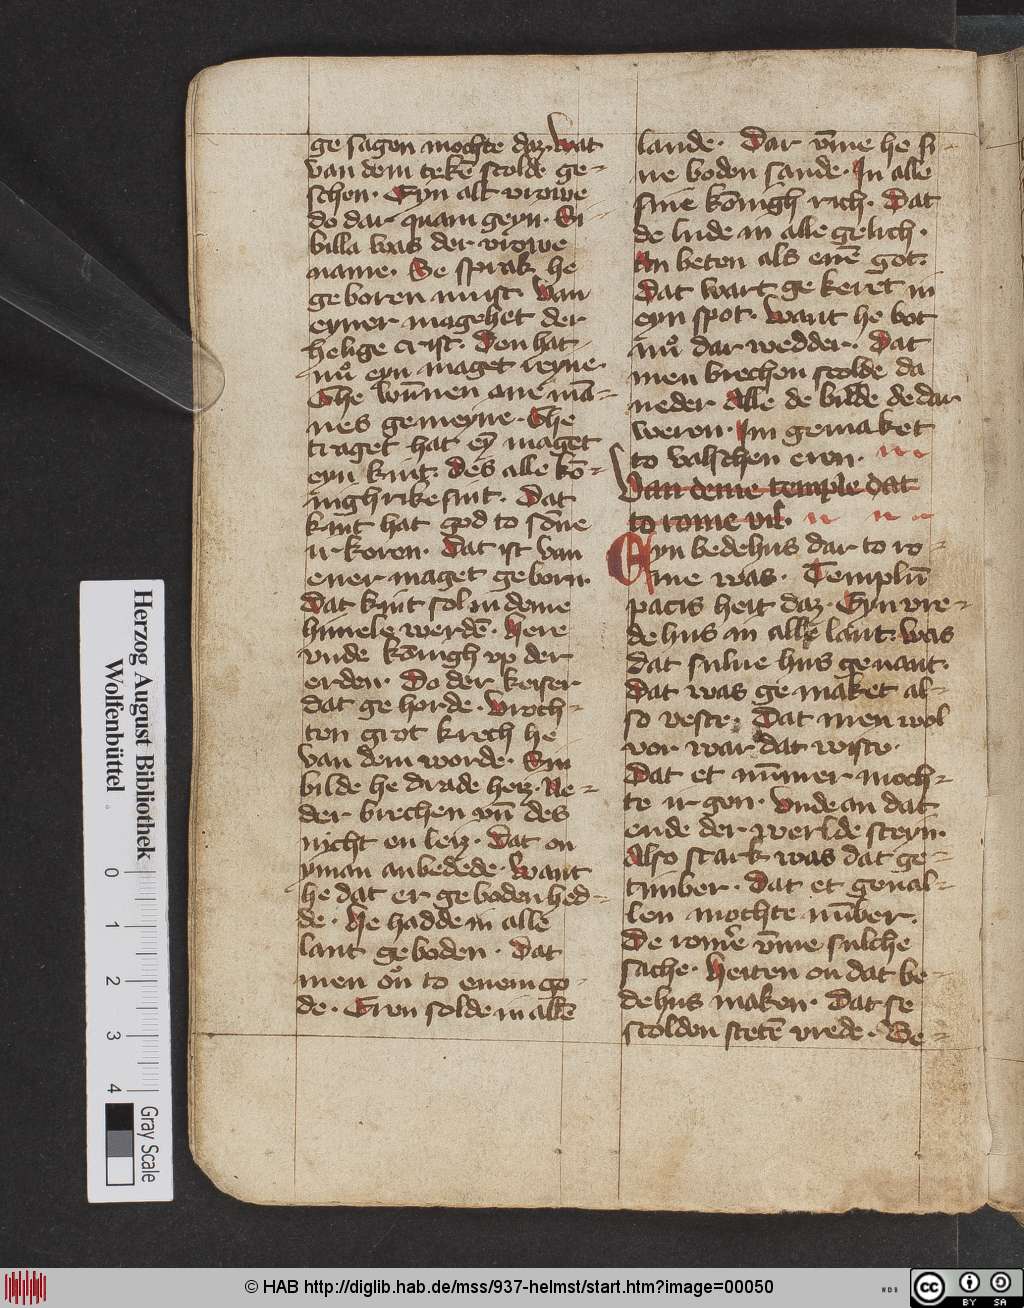 ge sagen mochte daz. wat
van dem tekē scolde ge-
schen. Eyn alt vrowe
do dar quam geyn. Si-
billa was der vrowe
name. Se sprak he
ge boren must. van
eyner magehet der
helige crist. Den hat
nů eyn maget reyne.
Ghe wūnen ane mā-
nes gemeyne. Ghe
traget hat eȳ maget
eyn kint. des alle kō-
nighrike sint. Dat
kint hat god to sōne
ir koren. Dat ist van
ener maget geborn.
Dat kint sol in deme
himele werdē. here
vnde kōnigh vp der
erden. Do der keiser
dat ge horde. vroch-
ten grot krech he
van dem worde. Sin
bilde he drade heiz. Ne-
der brechen vn̄ des
nicht en leiz. Dat on
yman anbedede. want
he dat er ge boden hed-
de. He hadde in alle
lant ge boden. Dat
men on to enem go-
de. Eren solde in allē
lande. Dar v̄me he si-
ne boden sande. In alle
sine kōnigh rich. Dat
de lude in alle gelich.
An beten als enē got.
Dat wart ge keret in
eyn spot. want he bot
nů dar wedder. Dat
men brechen scolde da
neder Alle de bilde de dar
weren. Im gemaket
to valschen eren.
Van deme temple dat
to rome vil.
Eyn bedehus dar to ro-
me was. Templū
pacis heit daz. Eyn vre-
de hus in alle lant. was
dat sulue hus genant.
Dat was ge maket al-
so veste. Dat men wol
vor war dat wiste.
Dat et nūmer moch-
te ir gen. vnde an dat
ende der werlde steyn.
Also stark was dat ge-
timber. Dat et geual-
len mochte nūber.
De romēre v̄me sulche
sache. Heiten on dat be-
dehus maken. Dat se
scolden stetē vrede. Be-
Herzog August Bibliothek
Wolfenbüttel
0 1 2 3 4
Gray Scale
© HAB http://diglib.hab.de/mss/937-helmst/start.htm?image=00050
WDB
cc BY SA